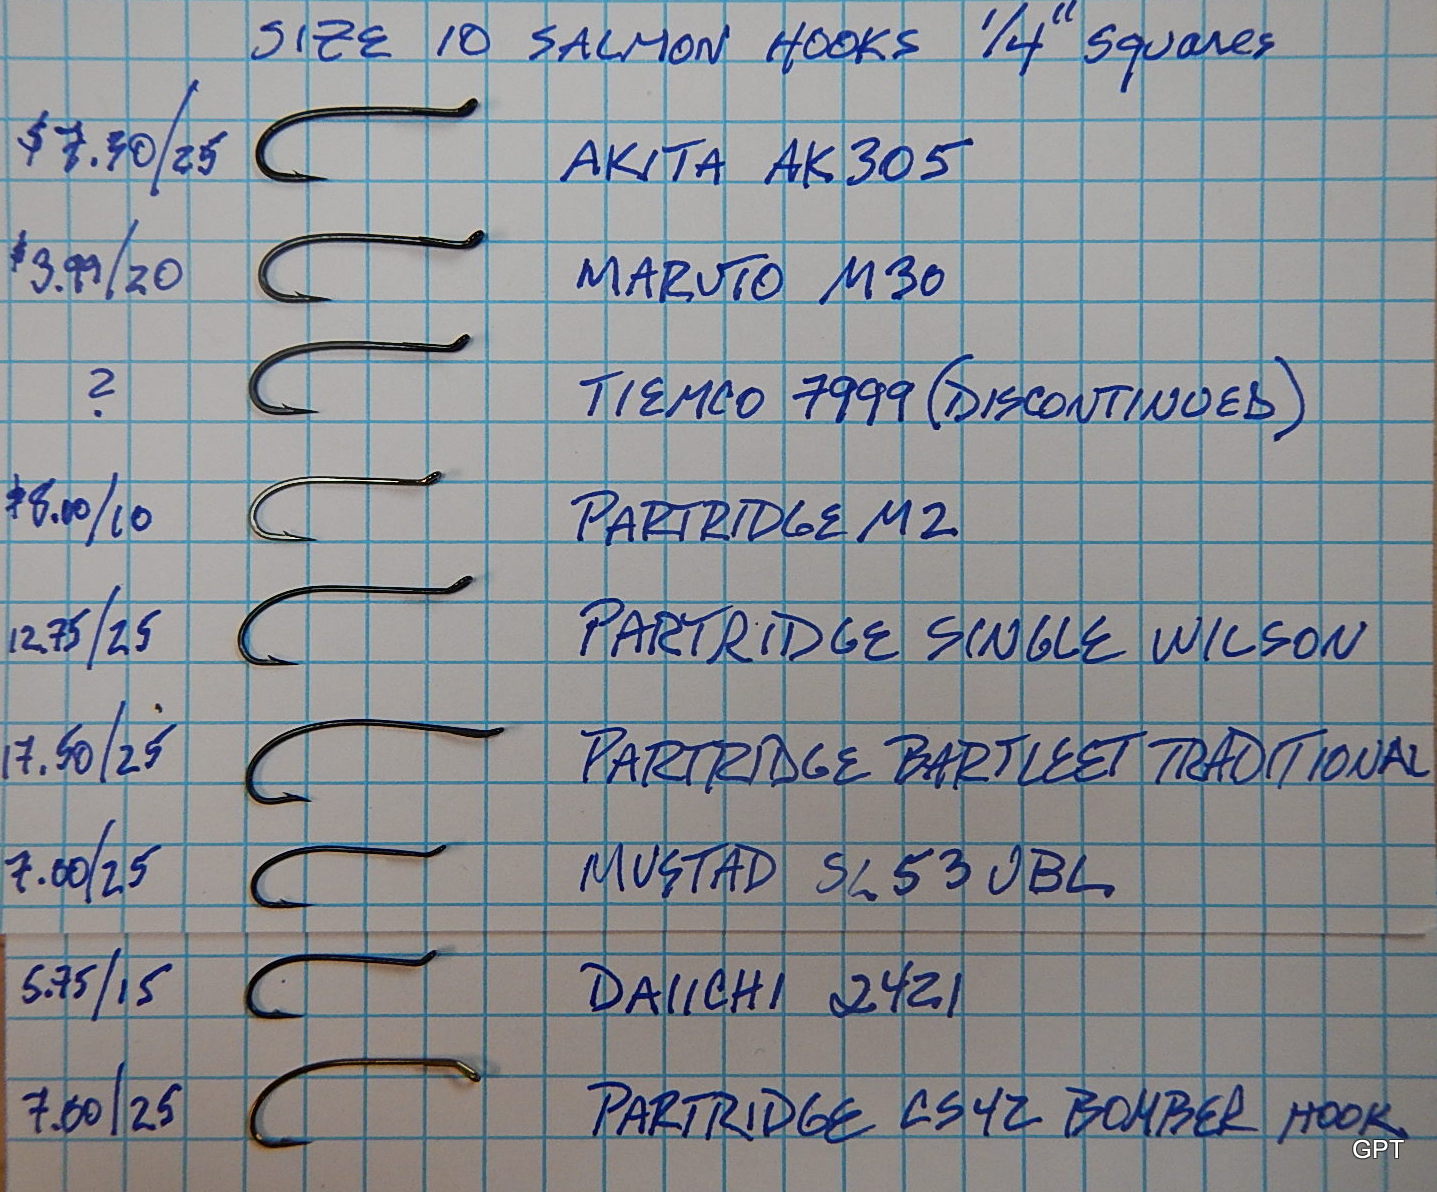 SIZE 10 SALMON HOOKS 1/4" Squares
$7.30/25 AKITA AK305
$3.99/20 MARUTO M30
? TIEMCO 7999 (DISCONTINUED)
$8.00/10 PARTRIDGE M2
12.75/25 PARTRIDGE SINGLE WILSON
17.50/25 PARTRIDGE BARTLEET TRADITIONAL
7.00/25 MUSTAD SL53UBL
5.75/15 DAIICHI 2421
7.00/25 PARTRIDGE CS42 BOMBER HOOK
GPT